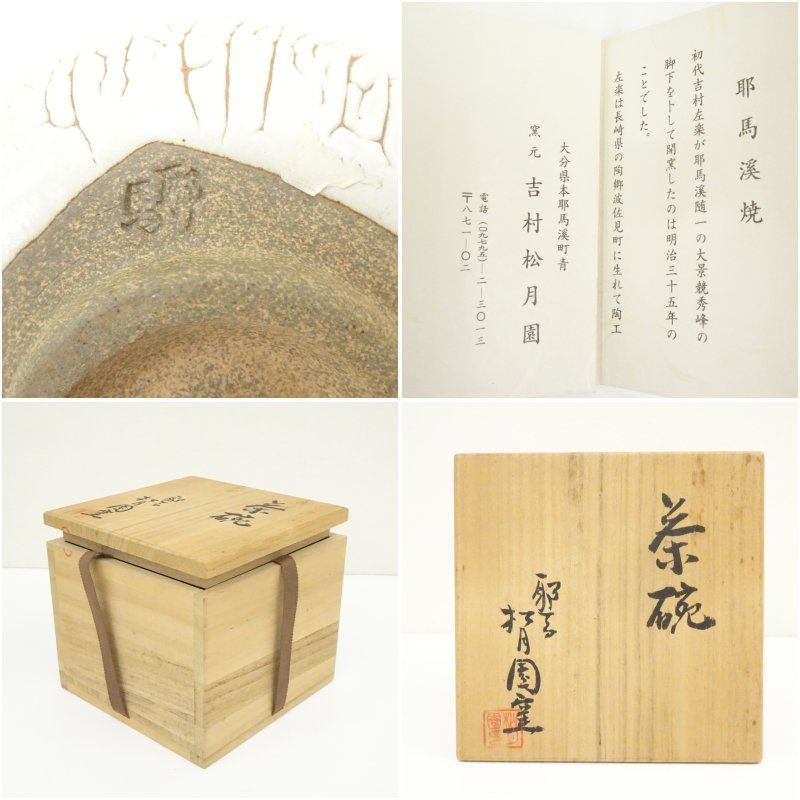 耶馬
耶馬溪焼
初代吉村左楽が耶馬溪随一の大景競秀峰の
脚下を卜して開窯したのは明治三十五年の
ことでした。
左楽は長崎県の陶郷波佐見町に生れて陶工
大分県本耶馬溪町青
窯元 吉村松月園
電話(〇九七九五)―二―三〇一三
〒八七一―〇二
茶碗
耶馬
松月園窯
茶碗
耶馬
松月園窯